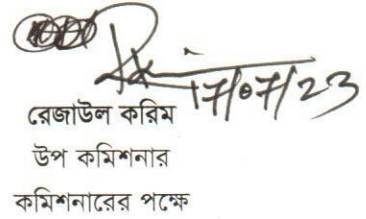 17/07/23
রেজাউল করিম
উপ কমিশনার
কমিশনারের পক্ষে